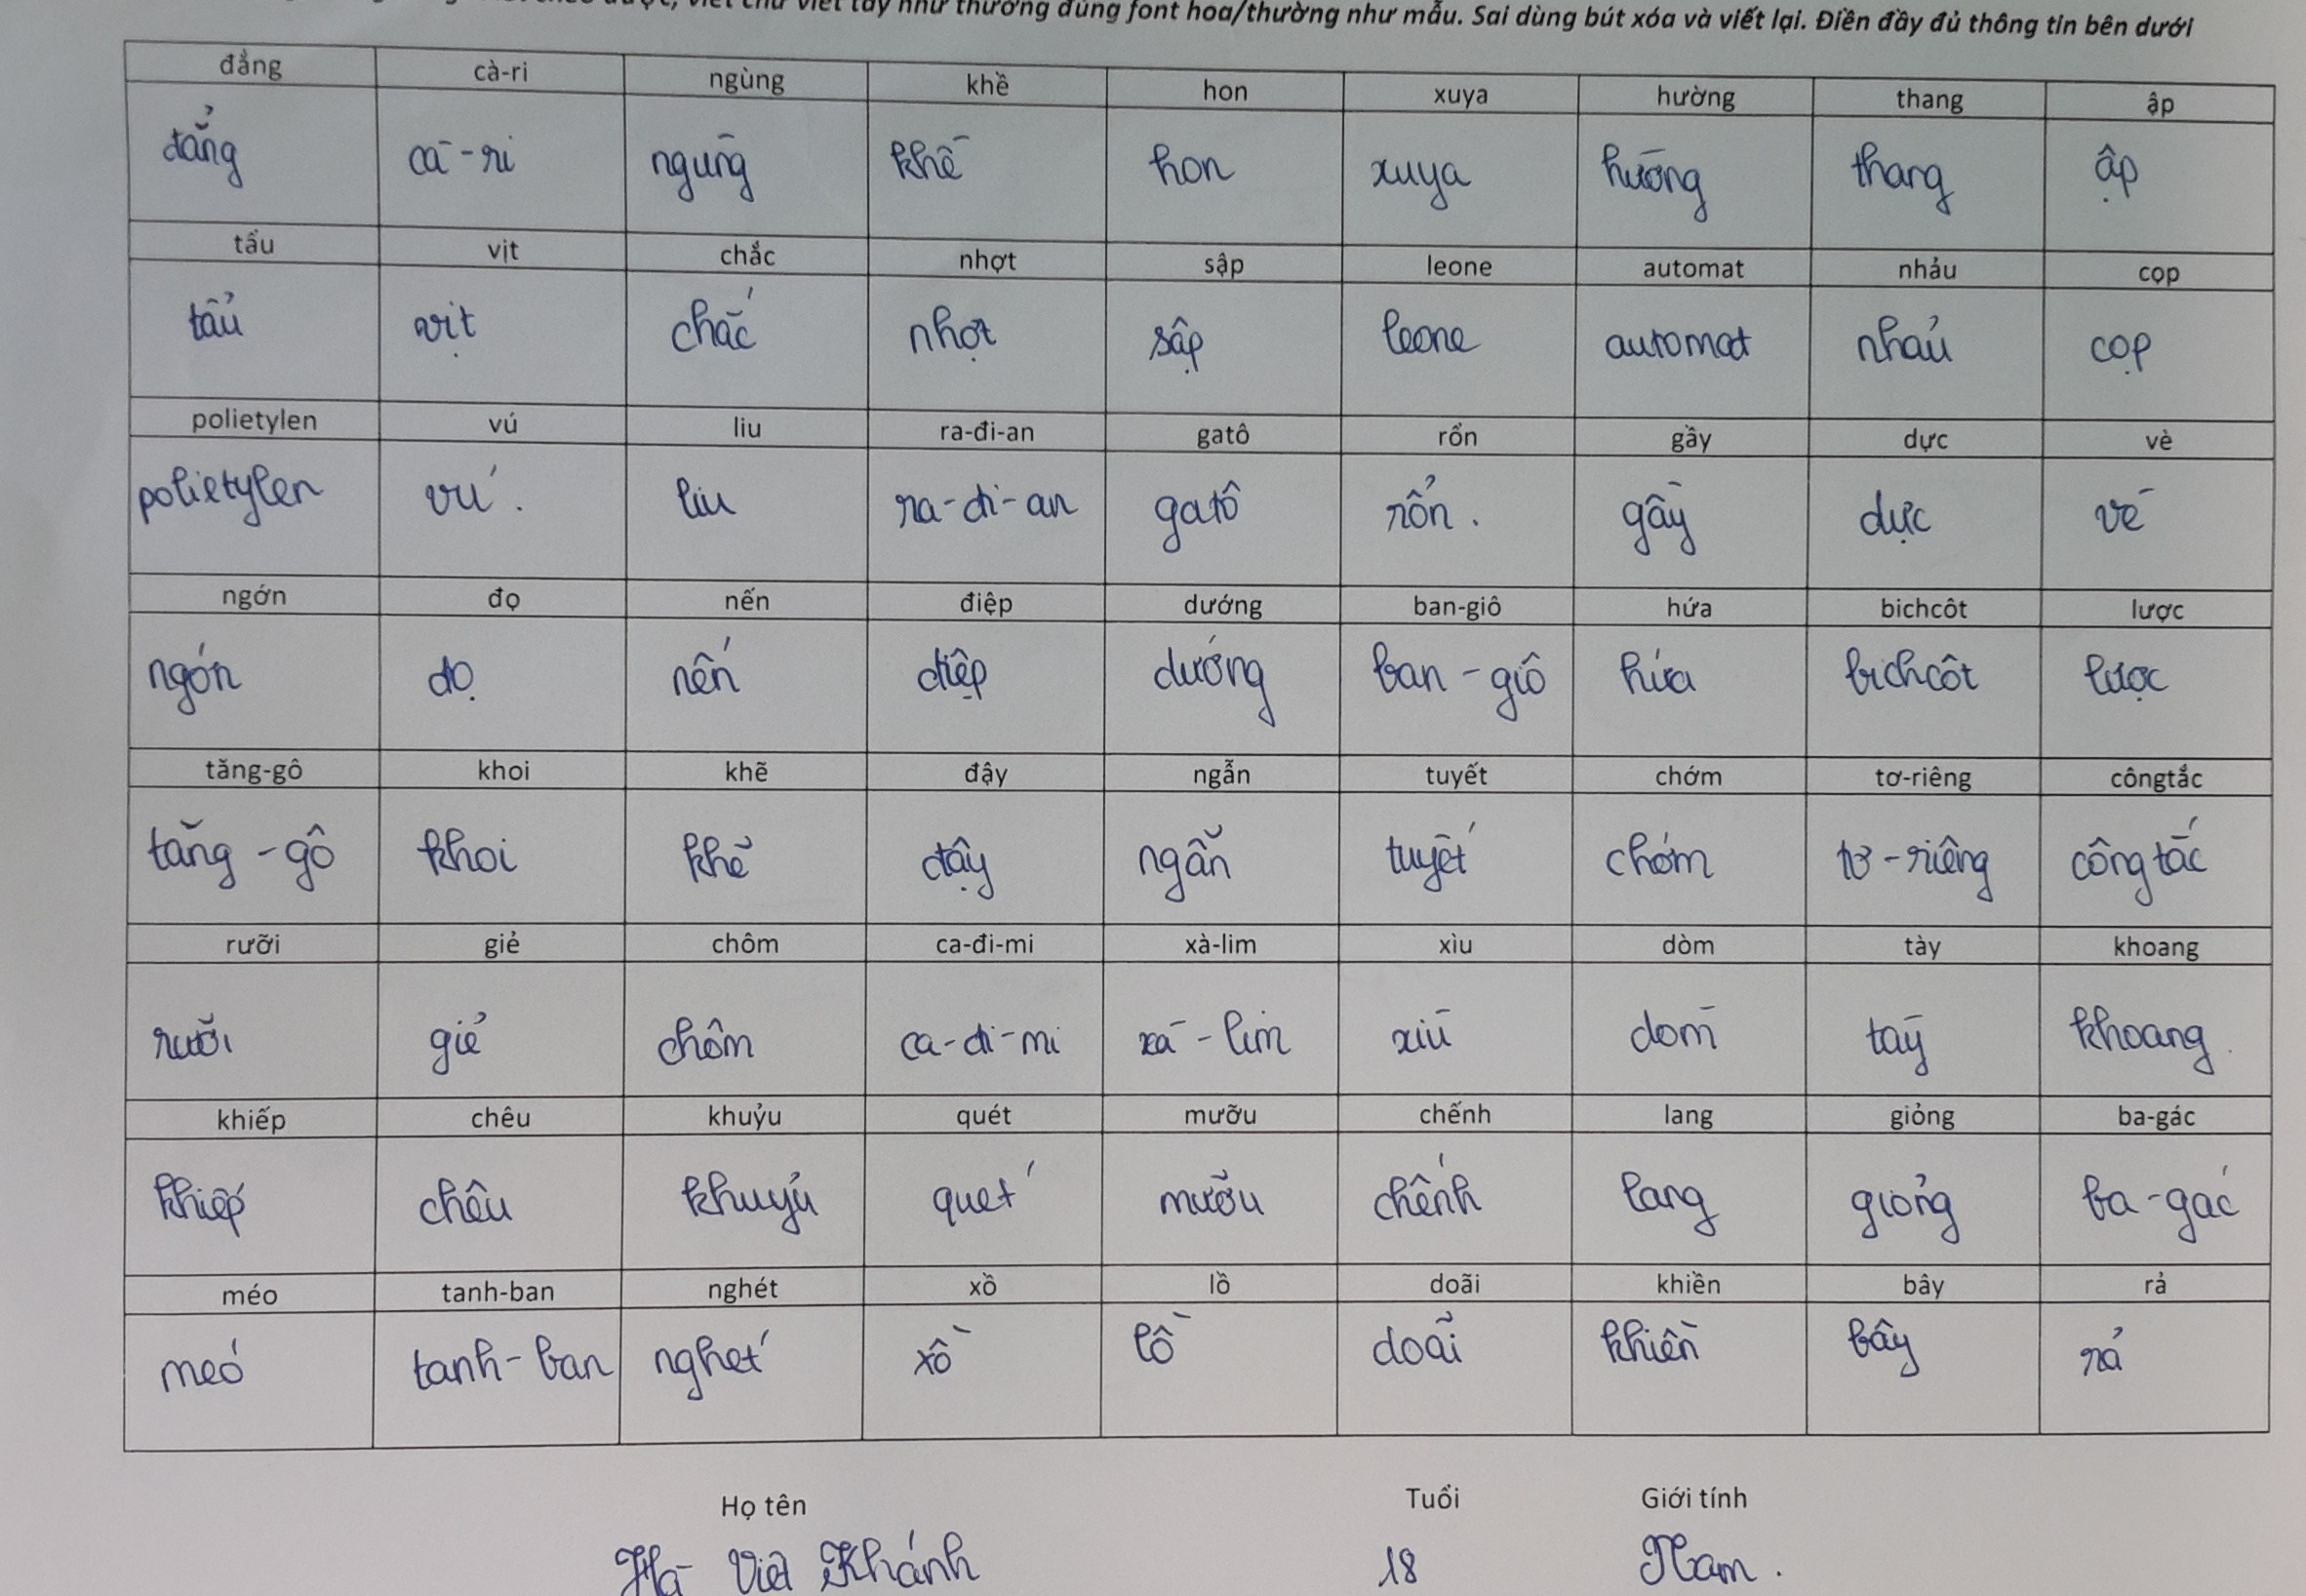 viết chữ viết tay như thường dùng font hoa/thường như mẫu. Sai dùng bút xóa và viết lại. Điền đầy đủ thông tin bên dưới
đẳng cà-ri ngùng khề hon xuya hường thang ập
đẳng cà-ri ngùng khề hon xuya hường thang ập
tẩu vịt chắc nhợt sập leone automat nhảu cọp
tẩu vịt chắc nhợt sập leone automat nhảu cọp
polietylen vú liu ra-đi-an gatô rổn gầy dực vè
polietylen vú. liu ra-đi-an gatô rổn. gầy dực vè
ngớn đọ nến điệp dướng ban-giô hứa bichcôt lược
ngớn đọ nến điệp dướng ban-giô hứa bichcôt lược
tăng-gô khoi khẽ đậy ngẫn tuyết chớm tơ-riêng côngtắc
tăng-gô khoi khẽ đậy ngẫn tuyết chớm tơ-riêng côngtắc
rưỡi giẻ chôm ca-đi-mi xà-lim xìu dòm tày khoang
rưỡi giẻ chôm ca-đi-mi xà-lim xìu dòm tày khoang.
khiếp chêu khuỷu quét mưỡu chếnh lang giỏng ba-gác
khiếp chêu khuỷu quét mưỡu chếnh lang giỏng ba-gác
méo tanh-ban nghét xồ lồ doãi khiền bây rả
méo tanh-ban nghét xồ lồ doãi khiền bây rả
Họ tên Tuổi Giới tính
Hà Việt Khánh 18 Nam.